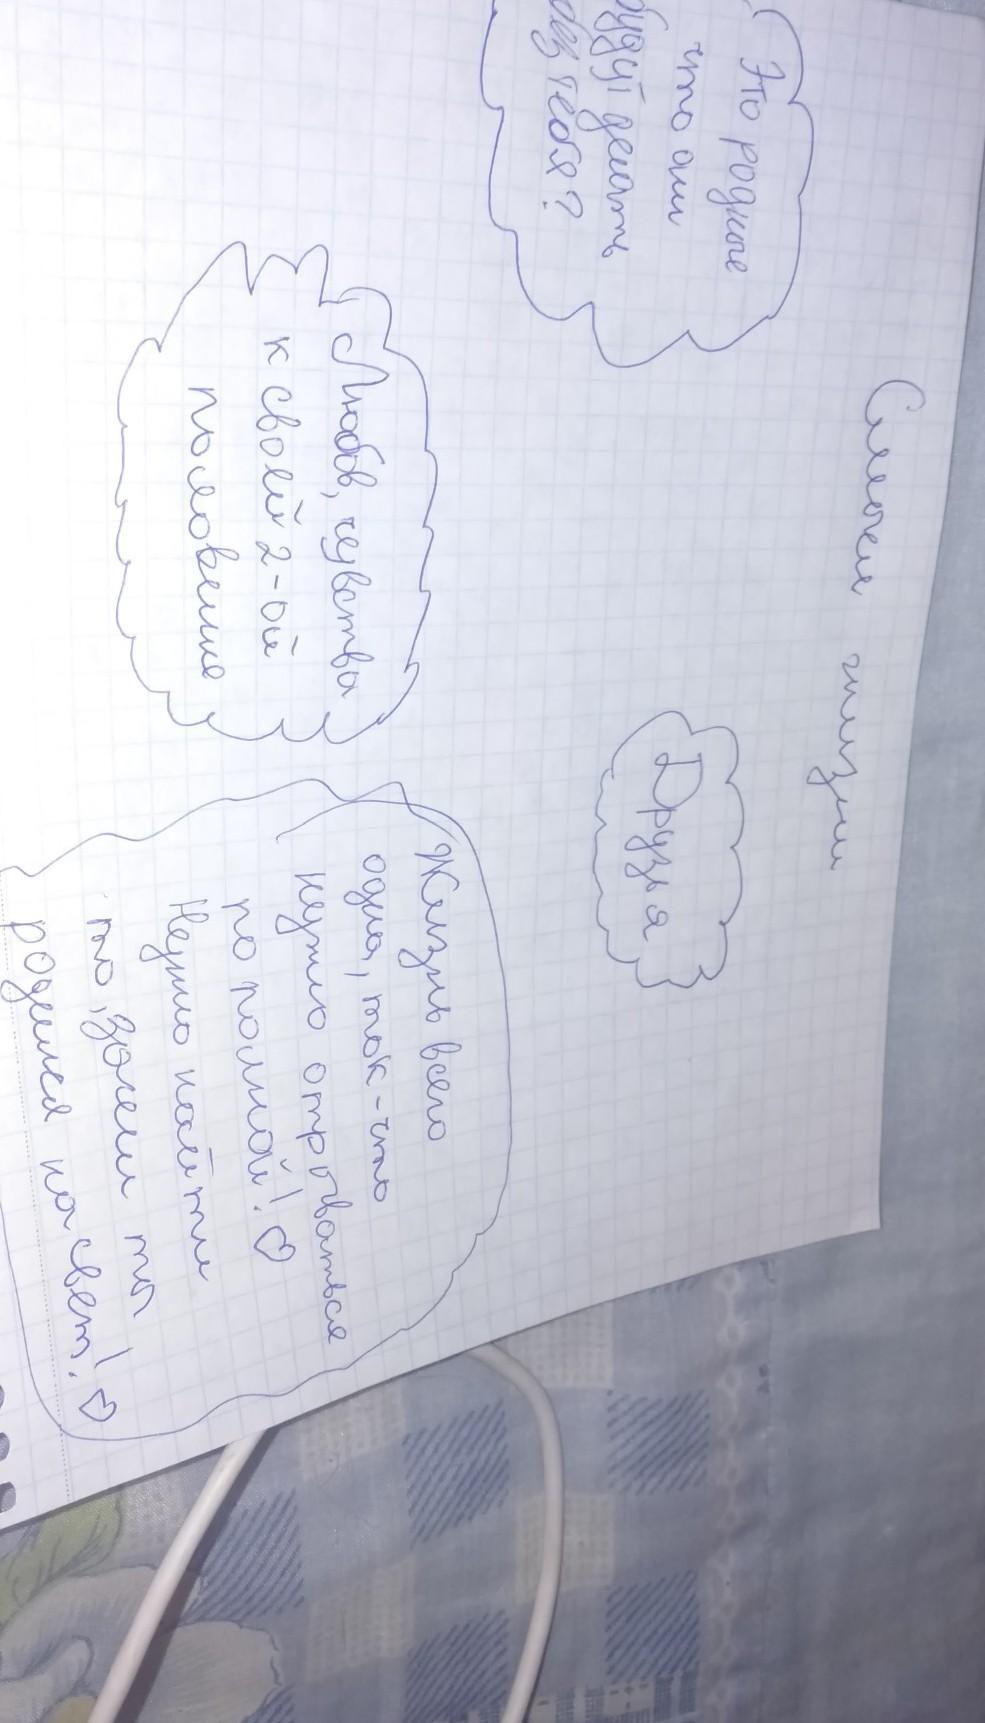 Смысл жизни
Это родные
что они
будут делать
без тебя?
Друзья
Любов, чувства
к своей 2-ой
половинке
Жизнь всего
одна, так-что
нужно отрываться
по полной! ♡
Нужно найти
то, зачем ты
родился на свет! ♡